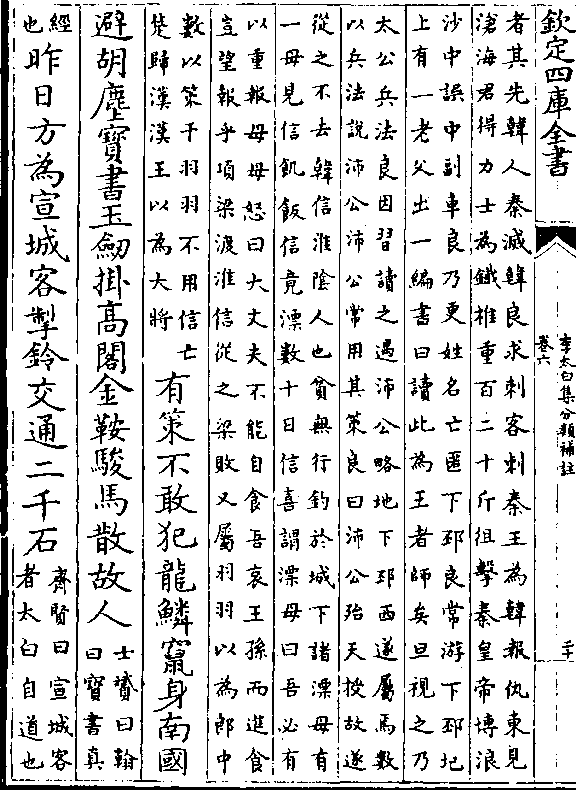 欽定四庫全書
李太白集分類補註
卷六
二十
者其先韓人秦滅韓良求刺客刺秦王為韓報仇東見
滄海君得力士為鐵椎重百二十斤狙擊秦皇帝博浪
沙中誤中副車良乃更姓名亡匿下邳良常游下邳圯
上有一老父出一編書曰讀此為王者師矣旦視之乃
太公兵法良因習讀之遇沛公略地下邳西遂屬焉數
以兵法說沛公沛公常用其策良曰沛公殆天授故遂
從之不去韓信淮陰人也貧無行釣於城下諸漂母有
一母見信飢飯信竟漂數十日信喜謂漂母曰吾必有
以重報母母怒曰大丈夫不能自食吾哀王孫而進食
豈望報乎項梁渡淮信從之梁敗又屬羽羽以為郎中
數以策干羽羽不用信亡
楚歸漢漢王以為大將
有策不敢犯龍鱗竄身南國
避胡塵寶書玉劒掛高閣金鞍駿馬散故人
士贇曰翰
曰寶書真
經
也
昨日方為宣城客掣鈴交通二千石
齊賢曰宣城客
者太白自道也